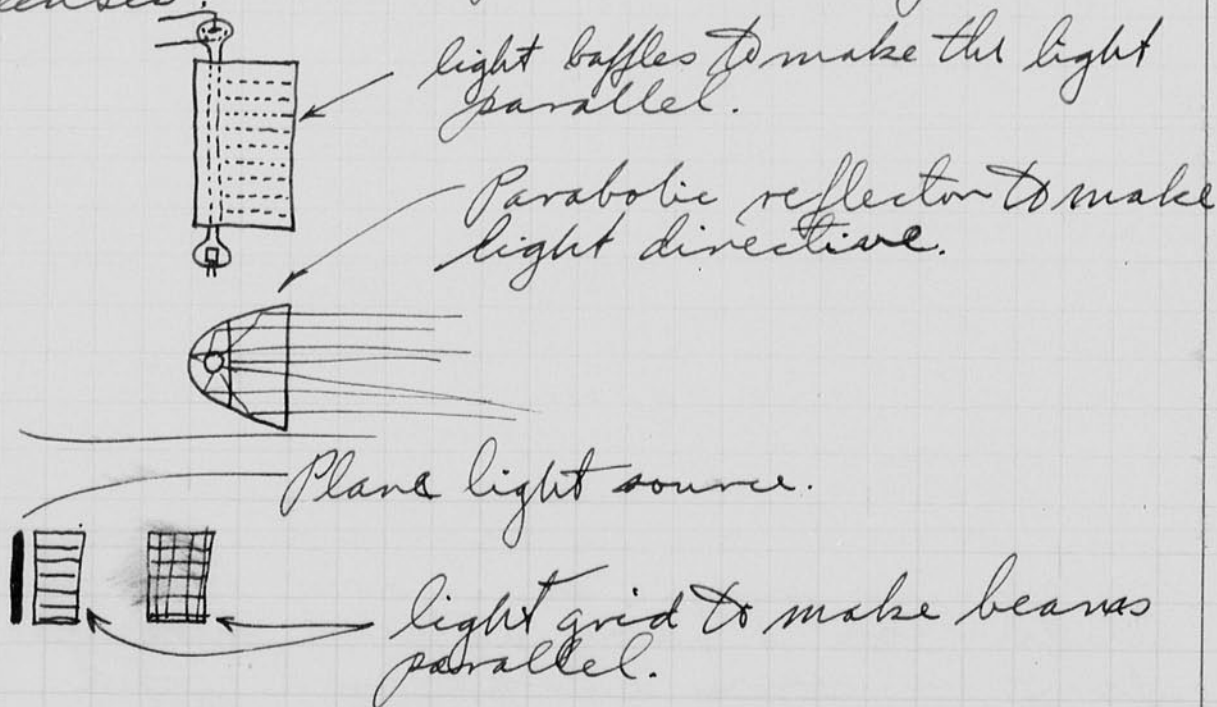 light baffles to make the light
parallel.
Parabolic reflector to make
light directive.
Plane light source.
light grid to make beams
parallel.